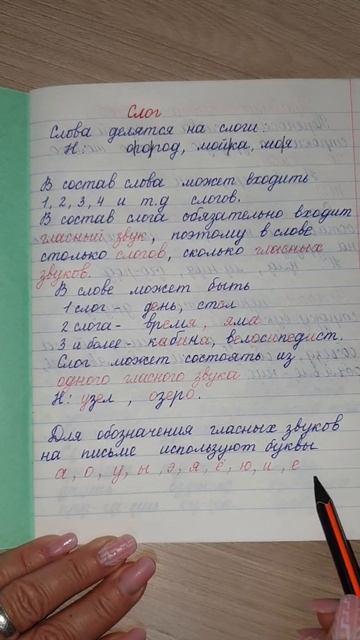 Слог
Слова делятся на слоги:
Н: огород, мойка, моря
В состав слова может входить
1, 2, 3, 4 и т.д слогов.
В состав слога обязательно входит
гласный звук, поэтому в слове
столько слогов, сколько гласных
звуков.
В слове может быть
1 слог - день, стол
2 слога - время, яма
3 и более - кабина, велосипедист.
Слог может состоять из
одного гласного звука
Н: узел, озеро.
Для обозначения гласных звуков
на письме используют буквы
а, о, у, ы, э, я, ё, ю, и, е